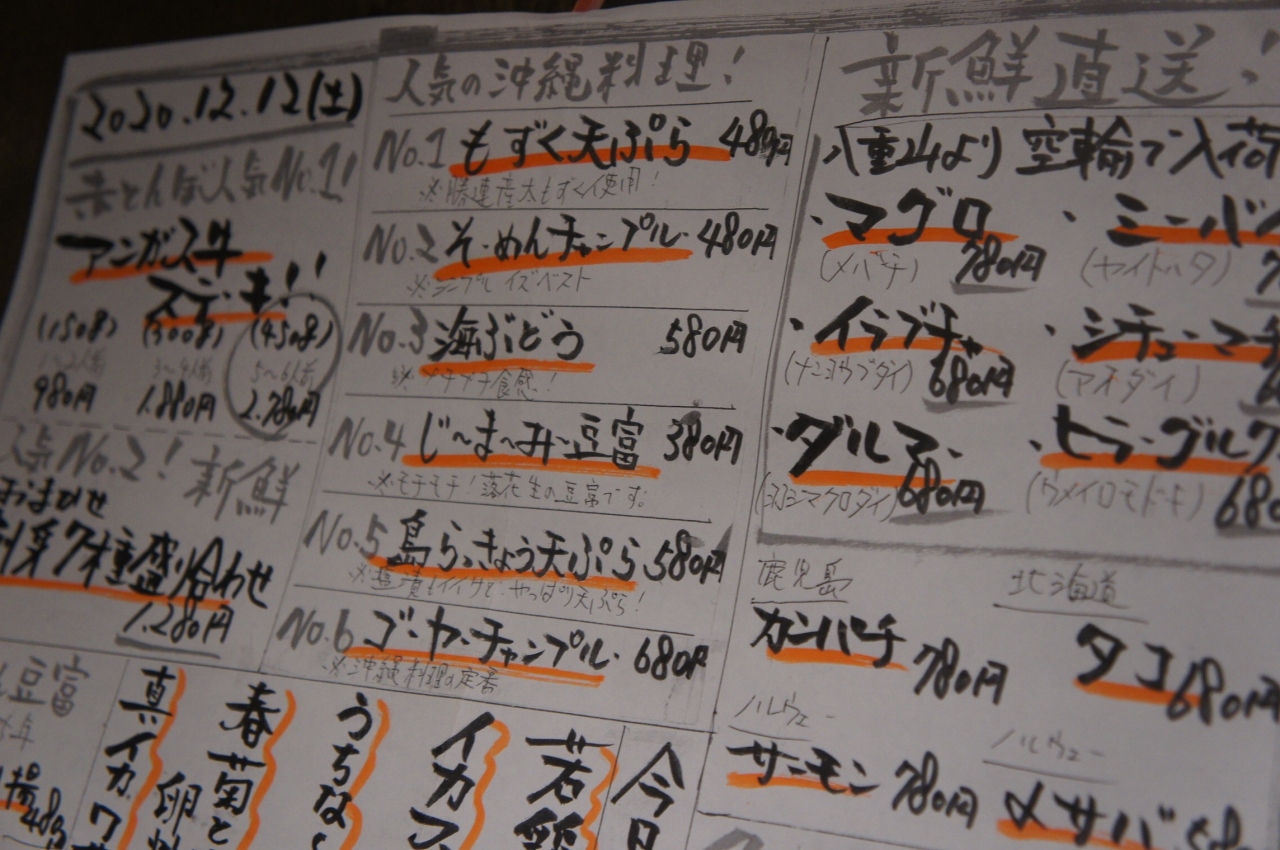 2020.12.12(土)
赤とんぼ人気No.1!
アンガス牛
ステーキ!!
(150g) (300g) (450g)
1~2人前 3~4人前 5~6人前
980円 1.880円 2.780円
人気No.2! 新鮮
おまかせ
刺身7種盛り合わせ
1.280円
人気の沖縄料理!
No.1 もずく天ぷら 480円
※勝連産太もずく使用!
No.2 そーめんチャンプルー 480円
※シンプルイズベスト
No.3 海ぶどう 580円
※プチプチ食感!
No.4 じ~ま~み~豆富 380円
※モチモチ!落花生の豆富です。
No.5 島らっきょう天ぷら 580円
※塩漬もイイけど、やっぱり天ぷら!
No.6 ゴーヤーチャンプルー 680円
※沖縄料理の定番
新鮮直送!
八重山より 空輸で入荷
・マグロ
(メバチ) 780円
・ミーバイ
(ヤイトハタ)
・イラブチャー
(ナンヨウブダイ) 680円
・シチューマチ
(アオダイ)
・ダルマー
(ヨコシマクロダイ) 680円
・ヒラーグルク
(ウメイロモドキ) 680
鹿児島
カンパチ 780円
北海道
タコ 680円
ノルウェー
サーモン 780円
ノルウェー
〆サバ
豆富
真イカワ
春菊と
卵
うちな
イカフ
若鶏
今日